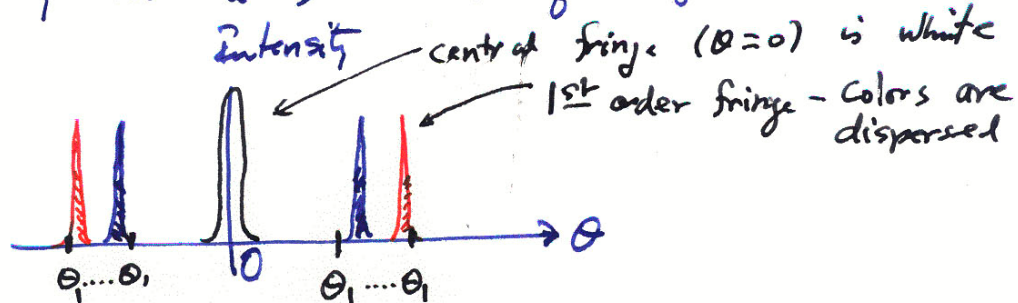 Intensity
central fringe (θ=0) is white
1st order fringe - colors are
dispersed
θ
0
θ₁....θ₁
θ₁....θ₁